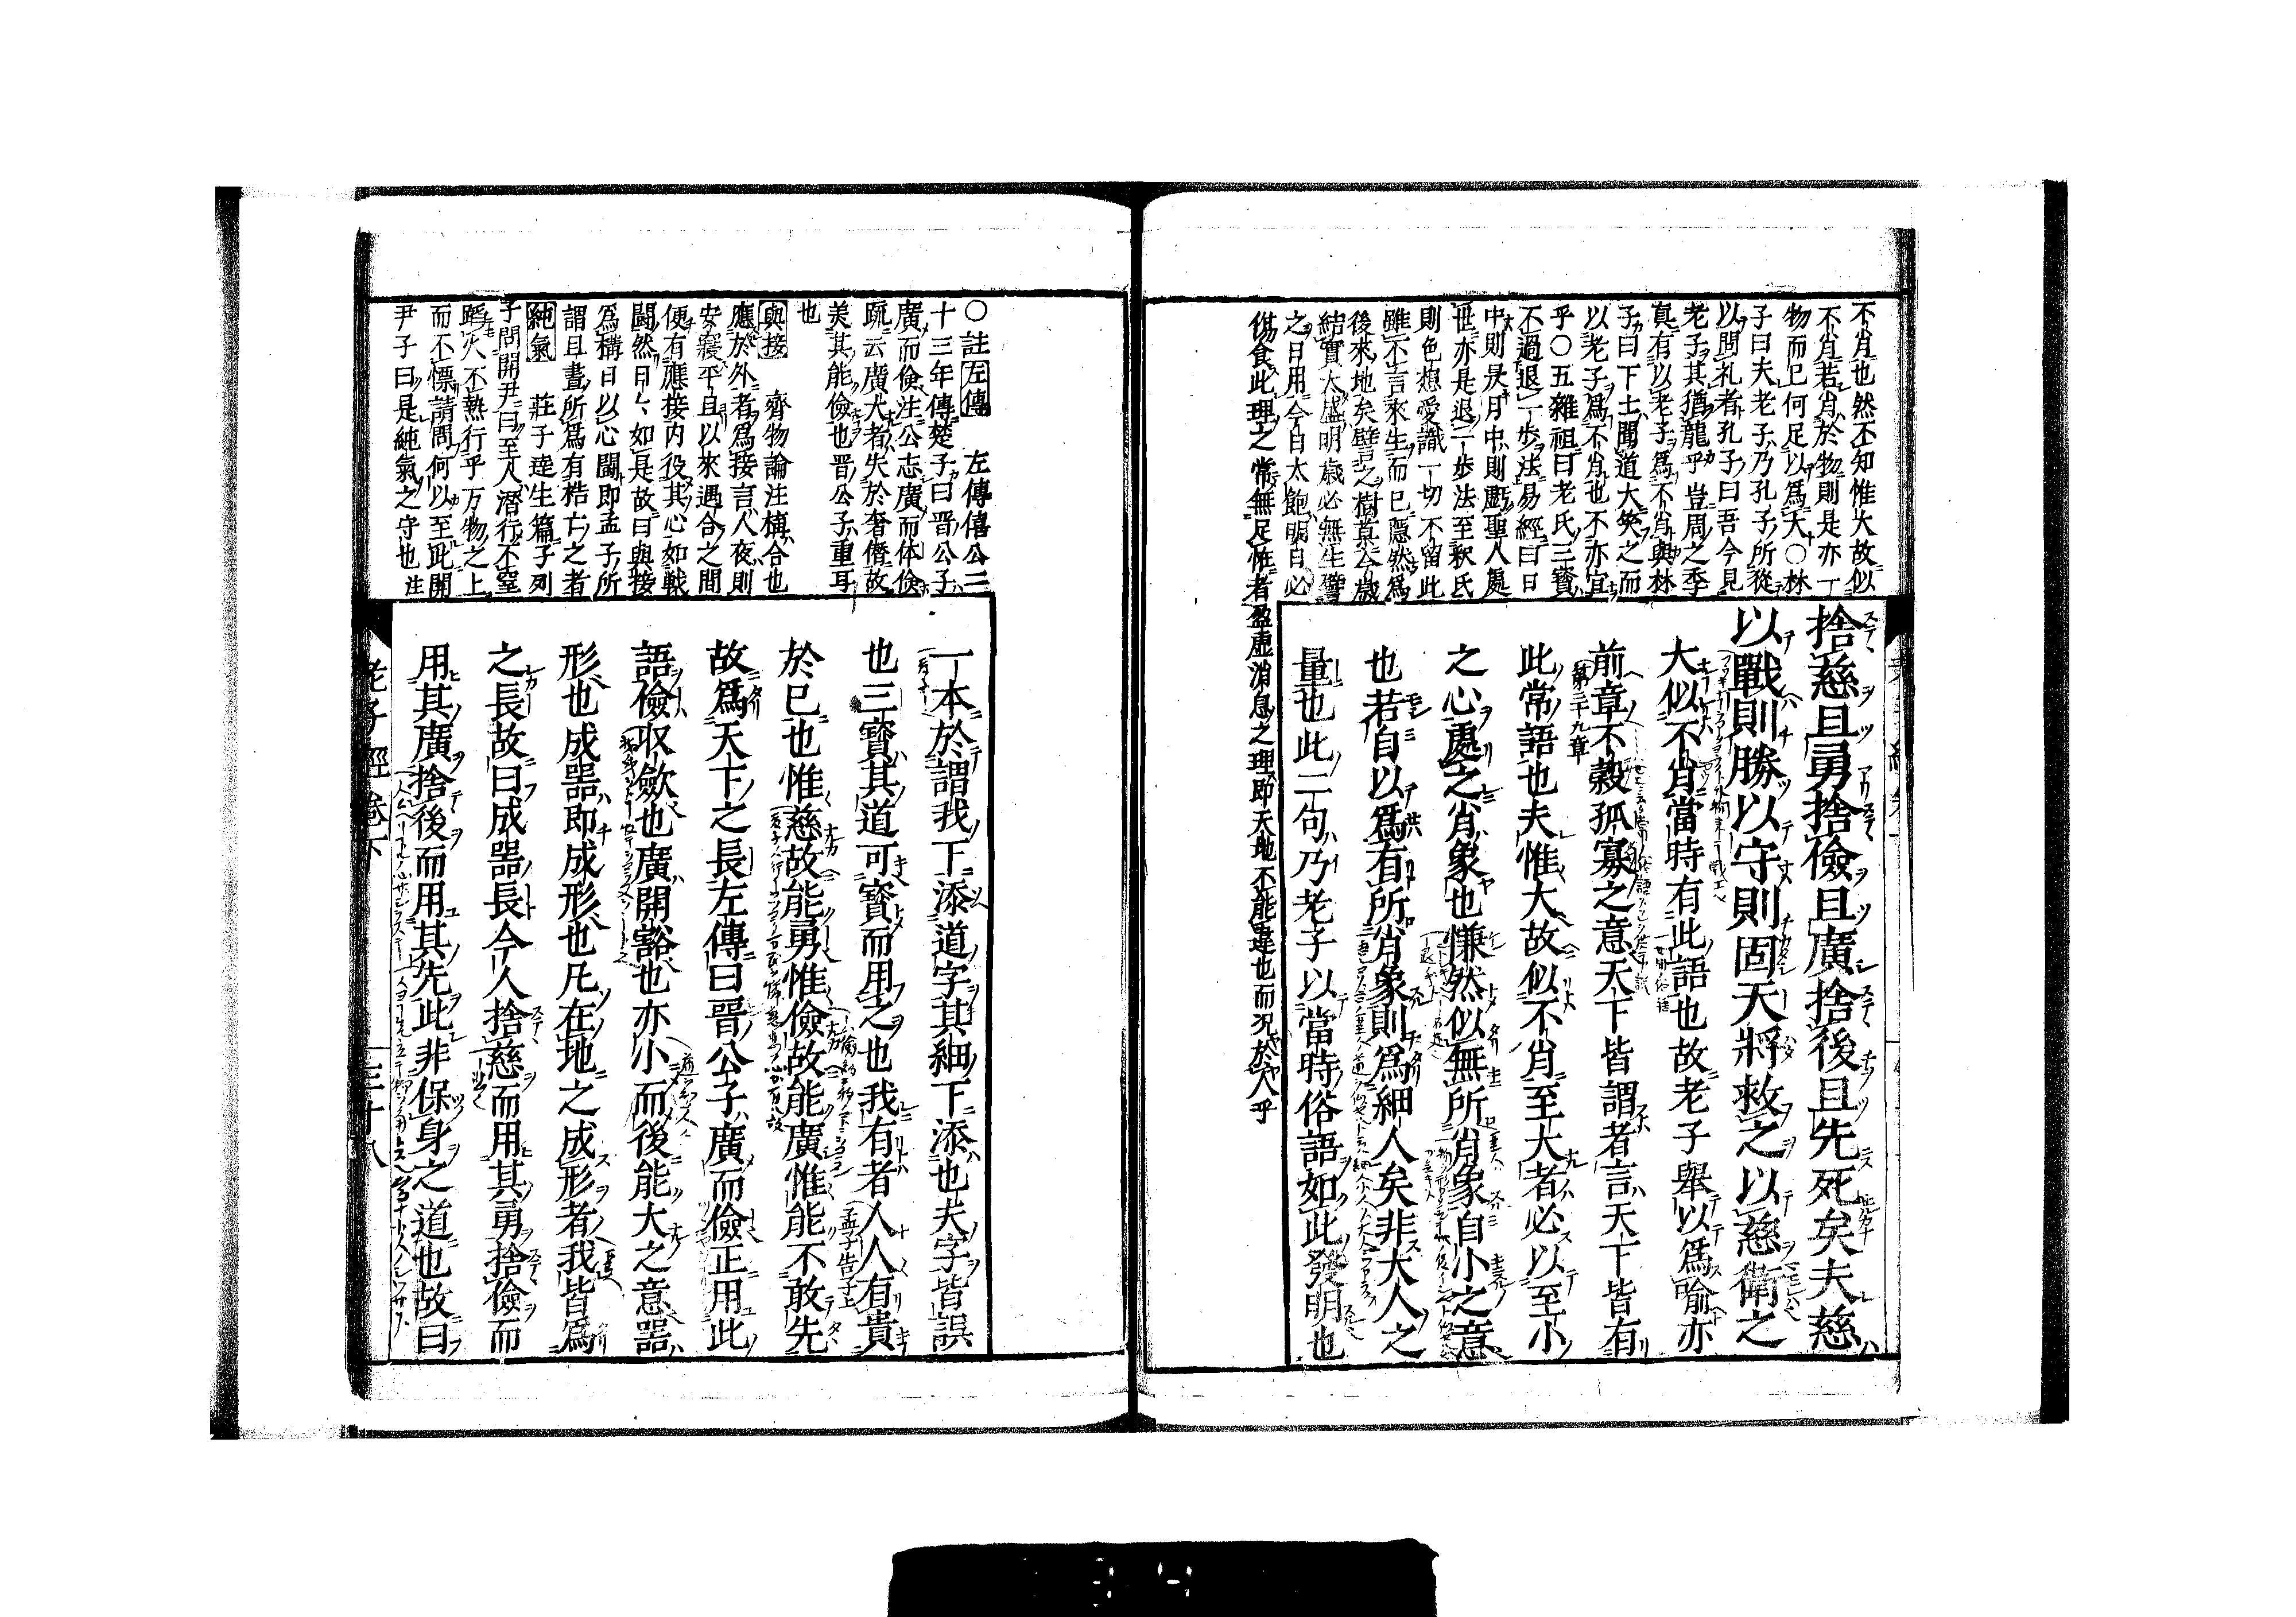 不肖也然不知惟大故似
不肖若肖於物則是亦一
物而已何足以爲大○林
子曰夫老子乃孔子所從
以問礼者孔子曰吾今見
老子其猶龍乎豈周之季
眞有以老子爲不肖與林
子曰下士聞道大笑之而
以老子爲不肖也不亦宜
乎○五雜俎曰老氏三寶
不過退一步法易經曰日
中則昃月中則虧聖人處
世亦是退一步法至釈氏
則色想愛識一切不留此
雖不言來生而已隱然爲
後來地矣譬之樹菓今歲
結實太盛明歲必無生譬
之日用今日太飽明日必
傷食此理之常無足怪者盈虛消息之理即天地不能違也而况於人乎
捨慈且勇捨儉且廣捨後且先死矣夫慈
以戰則勝以守則固天將救之以慈衛之
大似不肖當時有此語也故老子舉以爲喻亦
前章不穀孤寡之意天下皆謂者言天下皆有
此常語也夫惟大故似不肖至大者必以至小
之心處之肖象也慊然似無所肖象自小之意
也若自以爲有所肖象則爲細人矣非大人之
量也此二句乃老子以當時俗語如此發明也
第三十九章
○註左傳　左傳僖公二
十三年傳楚子曰晋公子
廣而儉注公志廣而体儉
疏云廣大者失於奢僭故
美其能儉也晋公子重耳
也
與接　齊物論注構合也
應於外者爲接言人夜則
安寢平旦以來遇合之間
便有應接内役其心如戰
鬪然日〻如是故曰與接
爲構日以心鬪即孟子所
謂旦晝所爲有梏亡之者
純氣　莊子達生篇子列
子問關尹曰至人潛行不窒
蹈火不熱行乎万物之上
而不慄請問何以至此關
尹子曰是純氣之守也注
一本於謂我下添道字其細下添也夫字皆誤
也三寶其道可寳而用之也我有者人人有貴
於已也惟慈故能勇惟儉故能廣惟能不敢先
故爲天下之長左傳曰晋公子廣而儉正用此
語儉収歛也廣開豁也亦小而後能大之意噐
形也成噐即成形也凡在地之成形者我皆爲
之長故曰成噐長今人捨慈而用其勇捨儉而
用其廣捨後而用其先此非保身之道也故曰
孟子告子上
老子經卷下　三十八